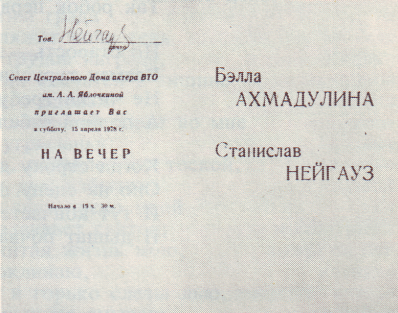 Тов. Нейгауз
Совет Центрального Дома актера ВТО
им. А. А. Яблочкиной
приглашает Вас
в субботу, 15 апреля 1978 г.
НА ВЕЧЕР
Начало в 19 ч. 30 м.
Бэлла
АХМАДУЛИНА
Станислав
НЕЙГАУЗ